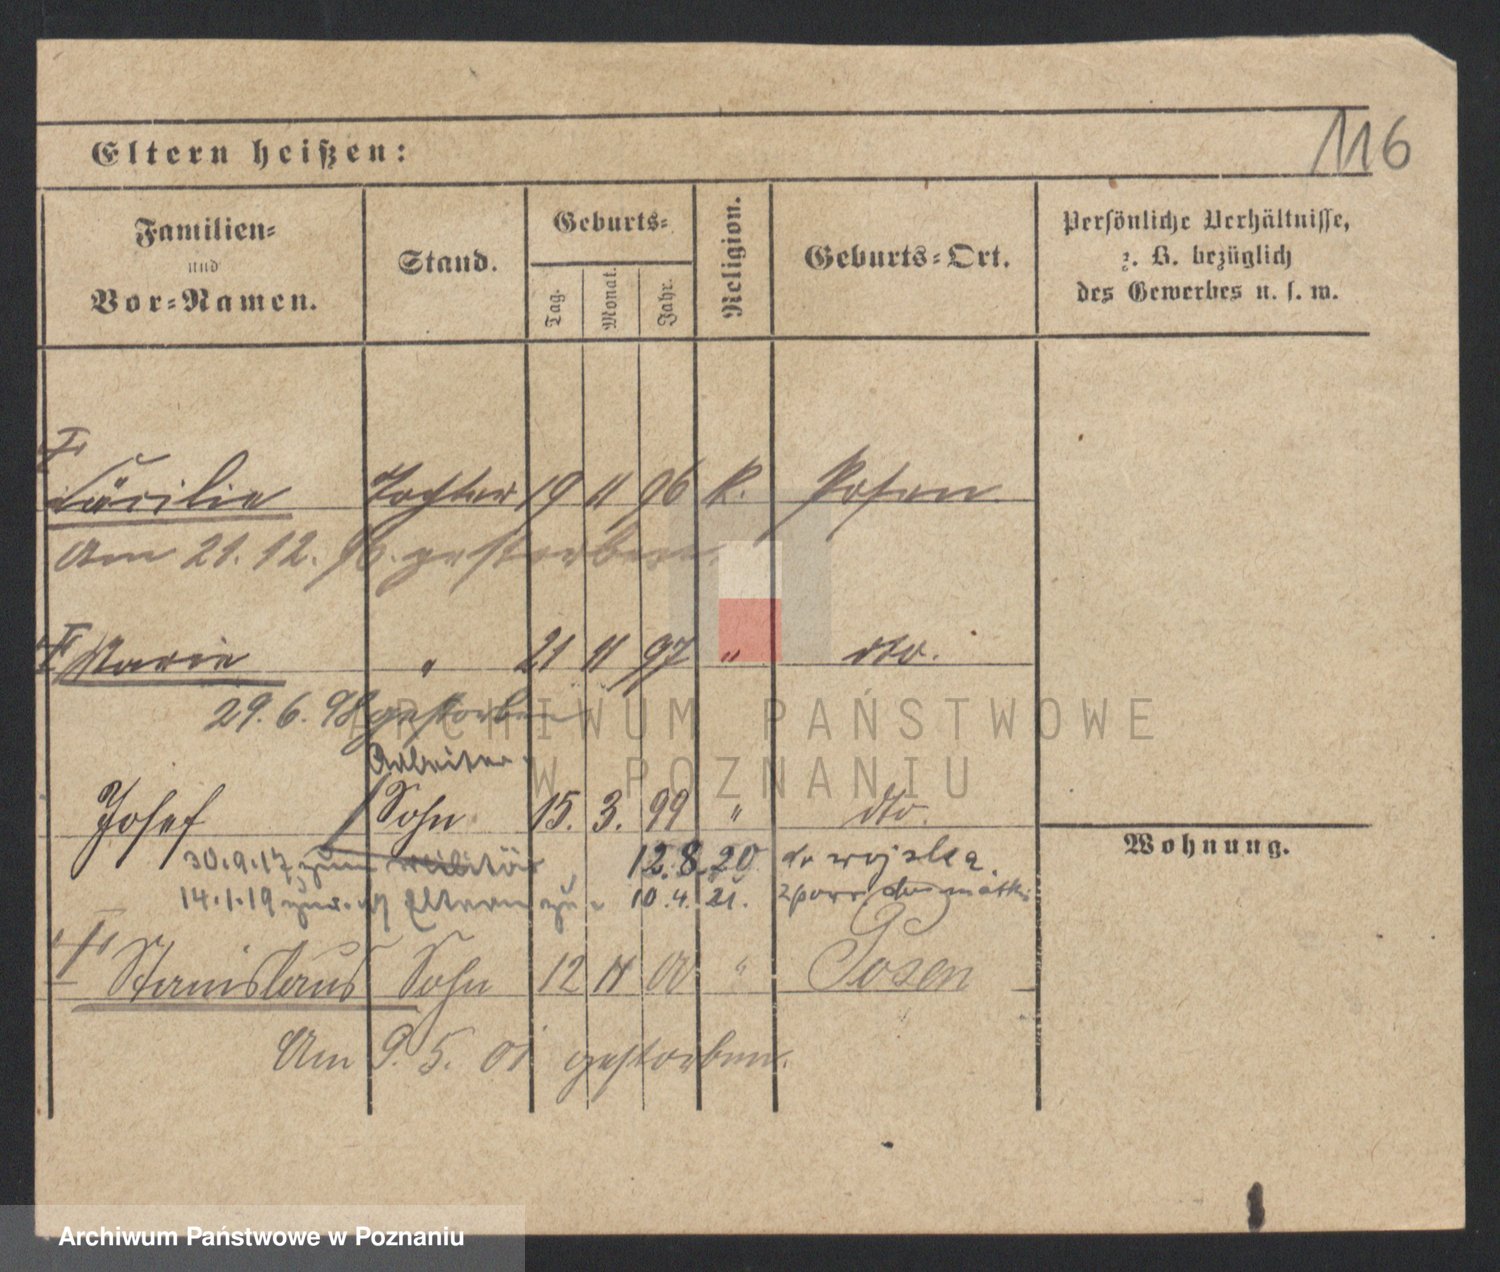 116
Eltern heißen:
Familien- und Vor-Namen.
Stand.
Geburts-
Tag. Monat. Jahr.
Religion.
Geburts-Ort.
Persönliche Verhältnisse, z. B. bezüglich des Gewerbes u. s. w.
Cäcilie Tochter 19 11 96 k. Posen
Am 21. 12. 96. gestorben.
Marie " 21 11 97 " dto.
29. 6. 98 gestorben
Arbeiter
Josef Sohn 15. 3. 99 " dto.
Wohnung.
30.9.17 zum Militär 12.8.20 do wojska
14.1.19 zur. Eltern zu 10.4.21. do matki
Stanislaus Sohn 12 11 00 " Posen
Am 9. 5. 01 gestorben.
ARCHIWUM PAŃSTWOWE
W POZNANIU
Archiwum Państwowe w Poznaniu